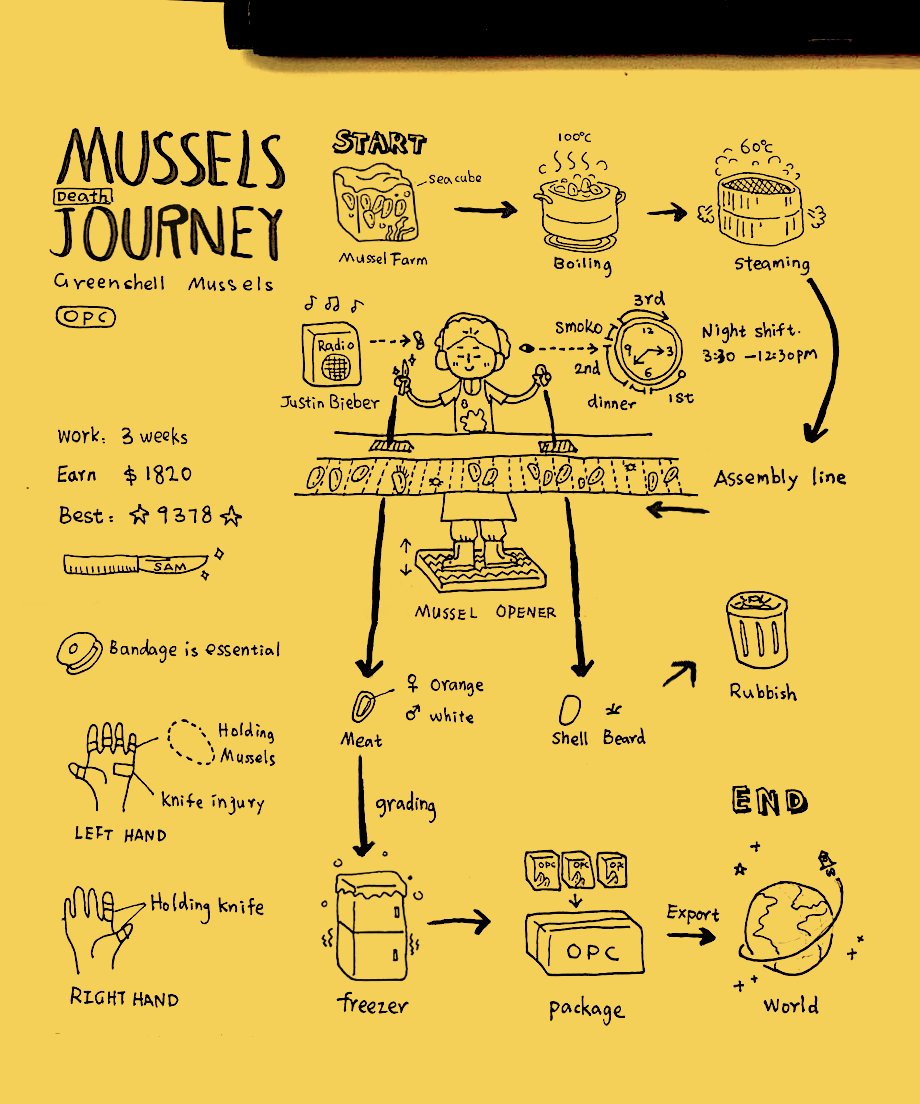 MUSSELS
Death
JOURNEY
Greenshell Mussels
OPC
START
sea cube
Mussel Farm
100°C
Boiling
60°C
Steaming
Radio
Justin Bieber
smoko
3rd
2nd
dinner
1st
12
9
3
6
Night shift.
3:30 -12:30pm
Work: 3 weeks
Earn $1820
Best: ☆ 9378 ☆
SAM
Assembly line
MUSSEL OPENER
Bandage is essential
Holding
Mussels
Knife injury
LEFT HAND
Holding knife
RIGHT HAND
♀ Orange
♂ white
Meat
Shell Beard
Rubbish
grading
freezer
OPC
OPC
OPC
package
Export
END
World